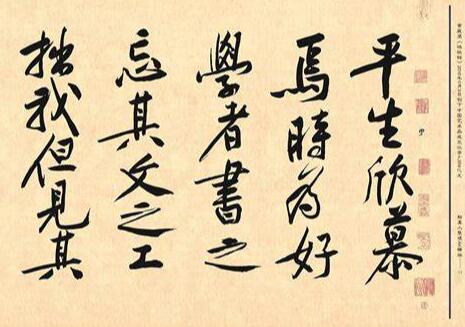 平生欣慕
焉時為好
學者書之
忘其文之工
拙我但見其